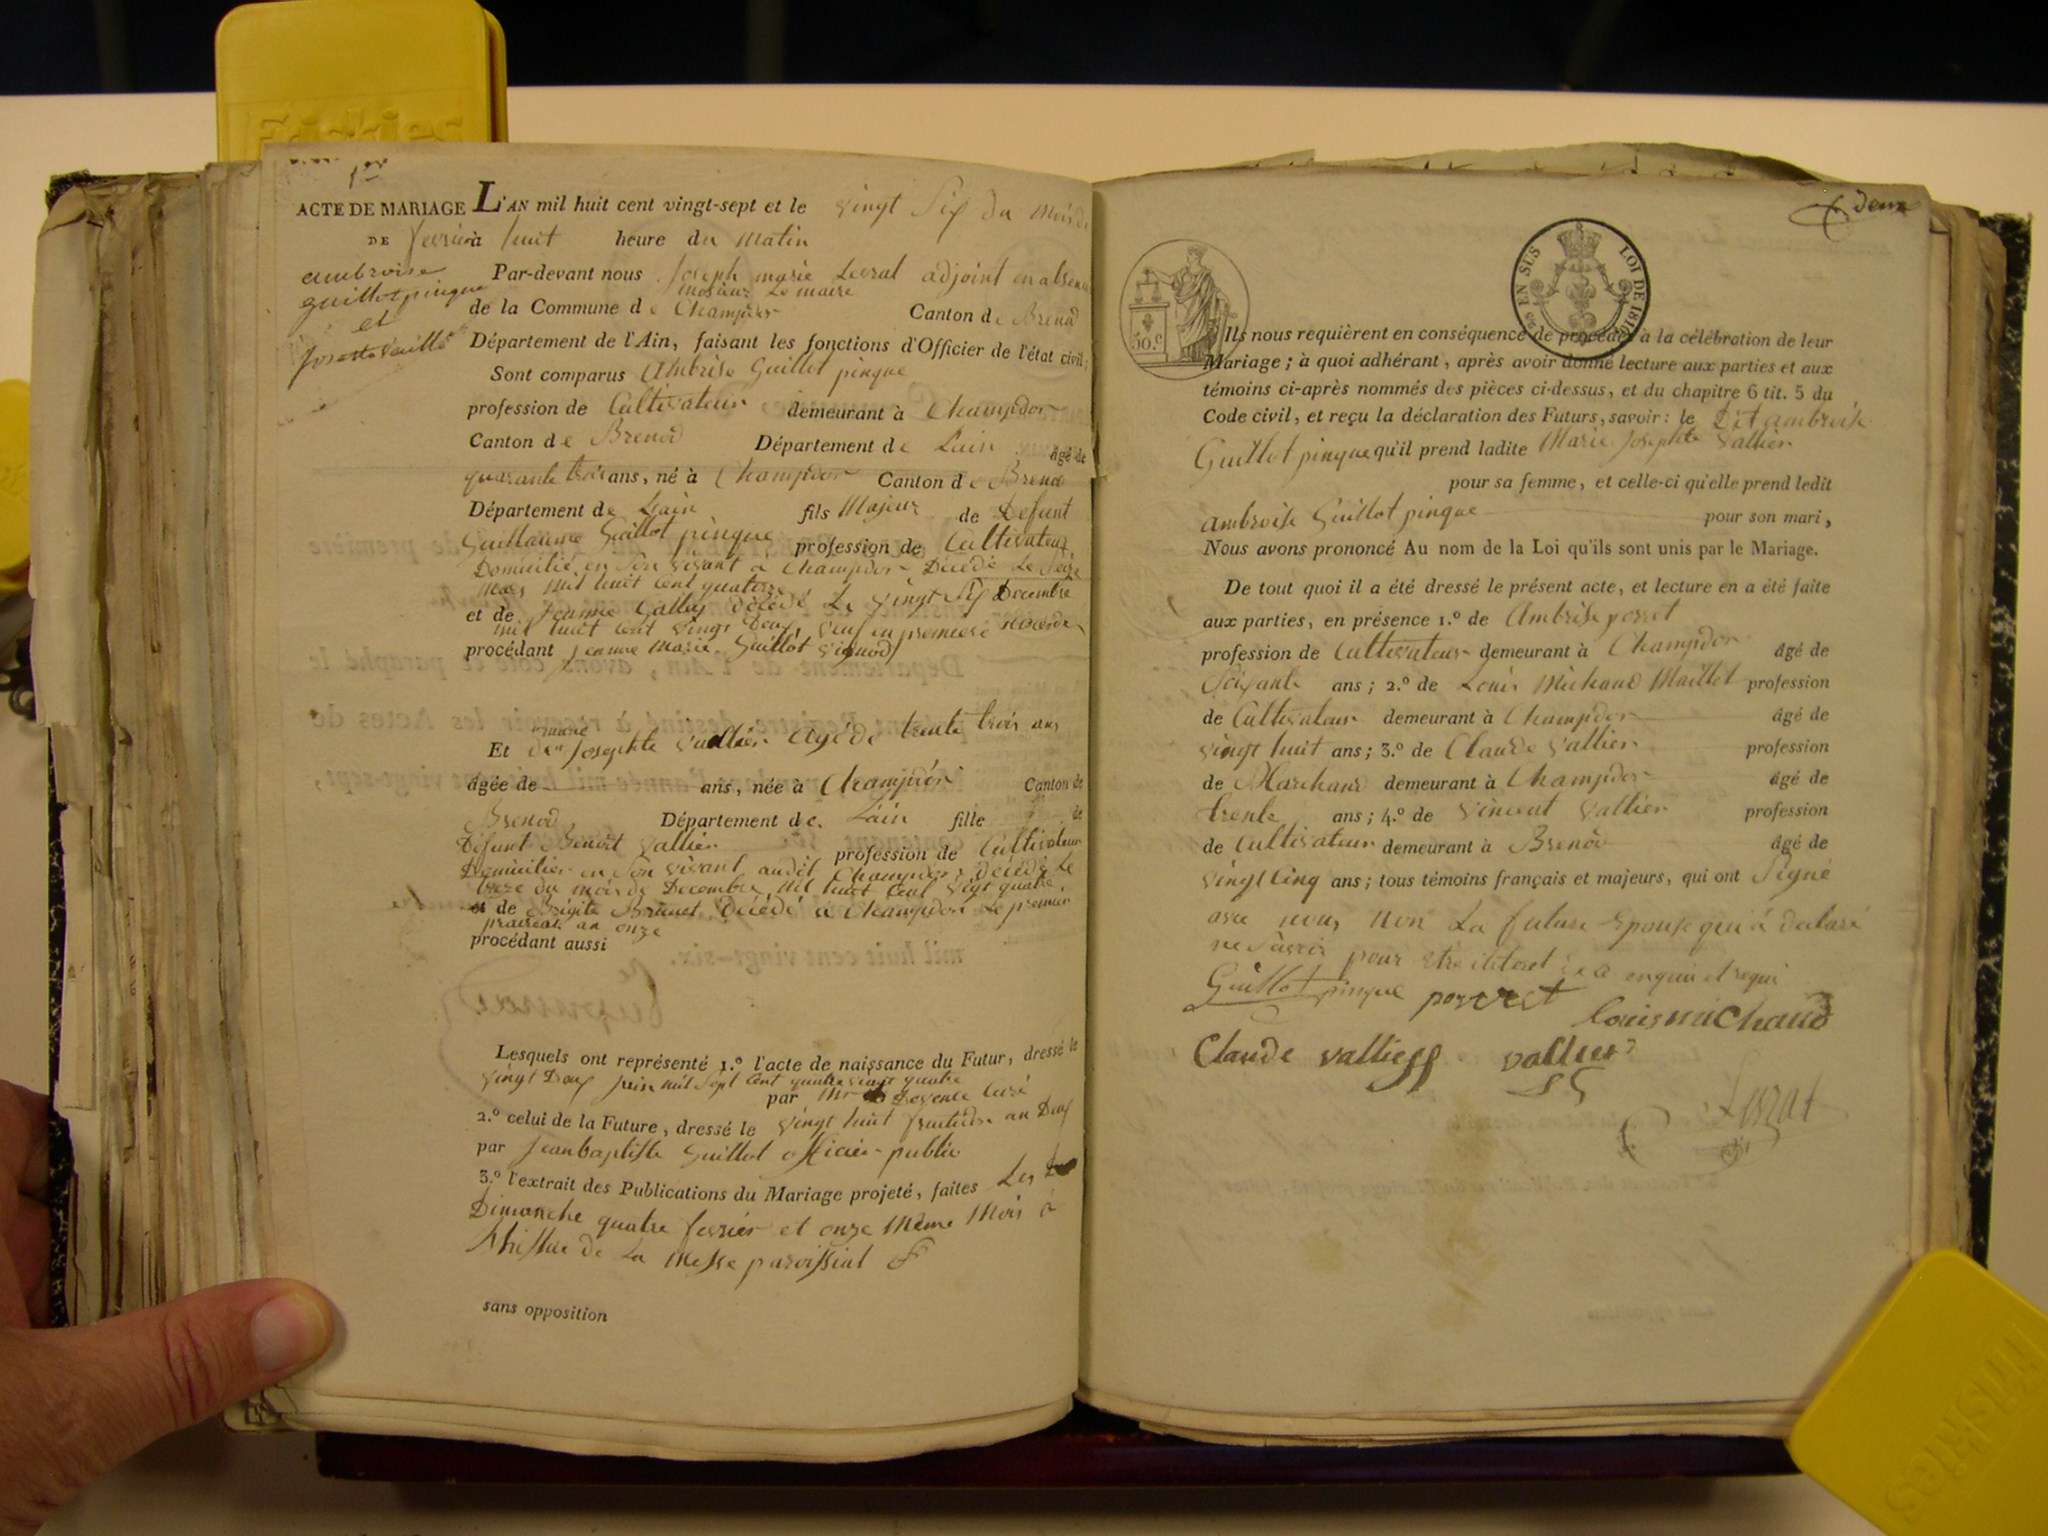 Friskies
1er
ACTE DE MARIAGE
DE
ambroise
guillot pinque
et
L'AN mil huit cent vingt-sept et le vingt Six du mois de
fevrier à huit heure du Matin
Par-devant nous Joseph marie adjoint en absence
mosieur Le maire
de la Commune de Champdor Canton de Brenod
Département de l'Ain, faisant les fonctions d'Officier de l'état civil;
Sont comparus Ambroise Guillot pinque
profession de Cultivateur demeurant à Champdor
Canton de Brenod Département de Lain âgé de
quarante trois ans, né à Champdor Canton de Brenod
Département de Lain fils Majeur de Defunt
Guillaume Guillot pinque profession de Cultivateur
Domicilié en Son vivant à Champdor Décédé Le Seize
Mars Mil huit cent quatorze
et de Jeanne décédé Le vingt Six Decembre
mil huit cent vingt Deux, veuf en premiere
procédant Jeanne Marie Guillot
marie
Et Josephte vallier Agé de trente trois ans
âgée de ans, née à Champdor Canton de
Brenod Département de Lain fille de
Défunt Benoit vallier profession de Cultivateur
Domicilier en Son vivant audit Champdor, décédé Le
onze du mois de Decembre, Mil huit Cent vigt quatre
et de Brigite Brunet, Décédé à Champdor Le premier
prairial an onze
procédant aussi
Lesquels ont représenté 1.º l'acte de naissance du Futur, dressé le
vingt Deux juin mil Sept Cent quatre vingt quatre
par Mr Curé
2.º celui de la Future, dressé le vingt huit fructidor an Deux
par Jean baptiste Guillot officier public
3.º l'extrait des Publications du Mariage projeté, faites Les
Dimanche quatre fevrier et onze Même Mois à
de La Messe paroissial
sans opposition
deux
EN SUS LOI DE 1816
50.c
Ils nous requièrent en conséquence de procéder à la célébration de leur
Mariage; à quoi adhérant, après avoir donné lecture aux parties et aux
témoins ci-après nommés des pièces ci-dessus, et du chapitre 6 tit. 5 du
Code civil, et reçu la déclaration des Futurs, savoir: le Dit ambroise
Guillot pinque qu'il prend ladite Marie Josephte vallier
pour sa femme, et celle-ci qu'elle prend ledit
ambroise Guillot pinque pour son mari,
Nous avons prononcé Au nom de la Loi qu'ils sont unis par le Mariage.
De tout quoi il a été dressé le présent acte, et lecture en a été faite
aux parties, en présence 1.º de Ambroise porret
profession de Cultivateur demeurant à Champdor âgé de
Soixante ans; 2.º de Louis Michaud Maillot profession
de Cultivateur demeurant à Champdor âgé de
vingt huit ans; 3.º de Claude vallier profession
de Marchand demeurant à Champdor âgé de
trente ans; 4.º de vincent vallier profession
de cultivateur demeurant à Brenod âgé de
vingt Cinq ans; tous témoins français et majeurs, qui ont Signé
avec nous Non La future Epouse qui a declaré
ne Savoir pour etre illiteret de ce enquis et requi
Guillot pinque porret louis michaud
Claude vallier vallier
Friskies